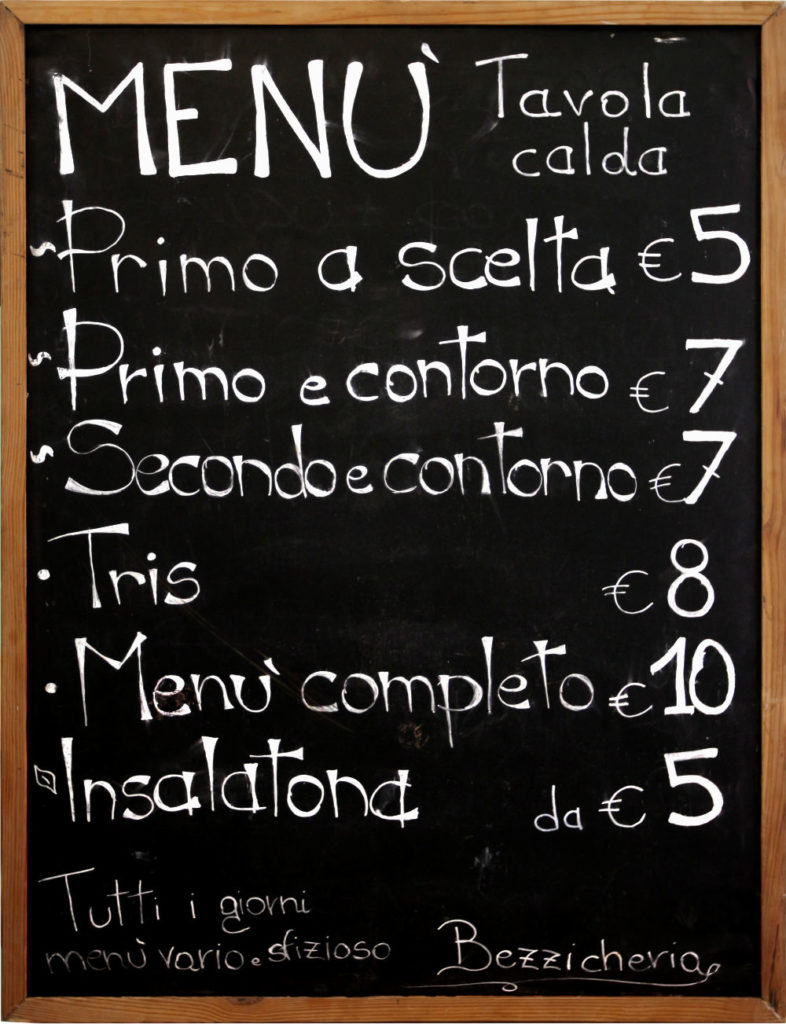 MENÙ Tavola
calda
Primo a scelta € 5
Primo e contorno € 7
Secondo e contorno € 7
· Tris € 8
· Menù completo € 10
Insalatona da € 5
Tutti i giorni
menù vario e sfizioso
Bezzicheria